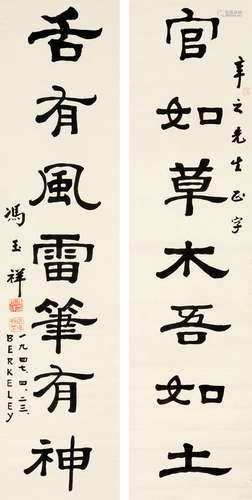 辛之先生正字
官如草木吾如土
舌有風雷筆有神
馮玉祥
一九四七、四、二三、
BERKELEY